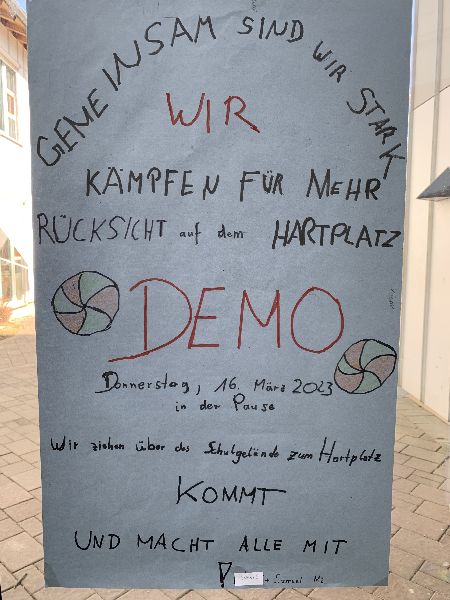 GEMEINSAM SIND WIR STARK
WIR
KÄMPFEN FÜR MEHR
RÜCKSICHT auf dem HARTPLATZ
DEMO
Donnerstag, 16. März 2023
in der Pause
Wir ziehen über das Schulgelände zum Hartplatz
KOMMT
UND MACHT ALLE MIT
!
+ Samuel M2